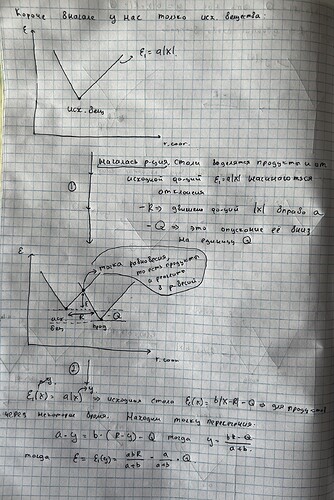 Короче вначале у нас только исх. вещества:
E
E₁ = a|x|
исх. вещ
r. коот.
Началась р-ция, стали водится продукты и от
исходной ф-ций E₁=a|x| начинаются
отклонения
①
- R ⇒ двигаем ф-ций |x| вправо
- Q ⇒ это опускание её вниз
на единицу Q
E
точка равновесия,
то есть продукты
и реагенты
в р-весии
E
R
Q
исх.
вещ
прод.
r. коот
②
E₁(x) = a|x| ⇒ исходная стала E₂(x) = b|x-R| - Q ⇒ для продуктов
через некоторое время. Находим точку пересечения.
a·y = b·(R-y) - Q тогда y = bR-Q / a+b
тогда E = E₁(y) = abR / a+b - a / a+b · Q